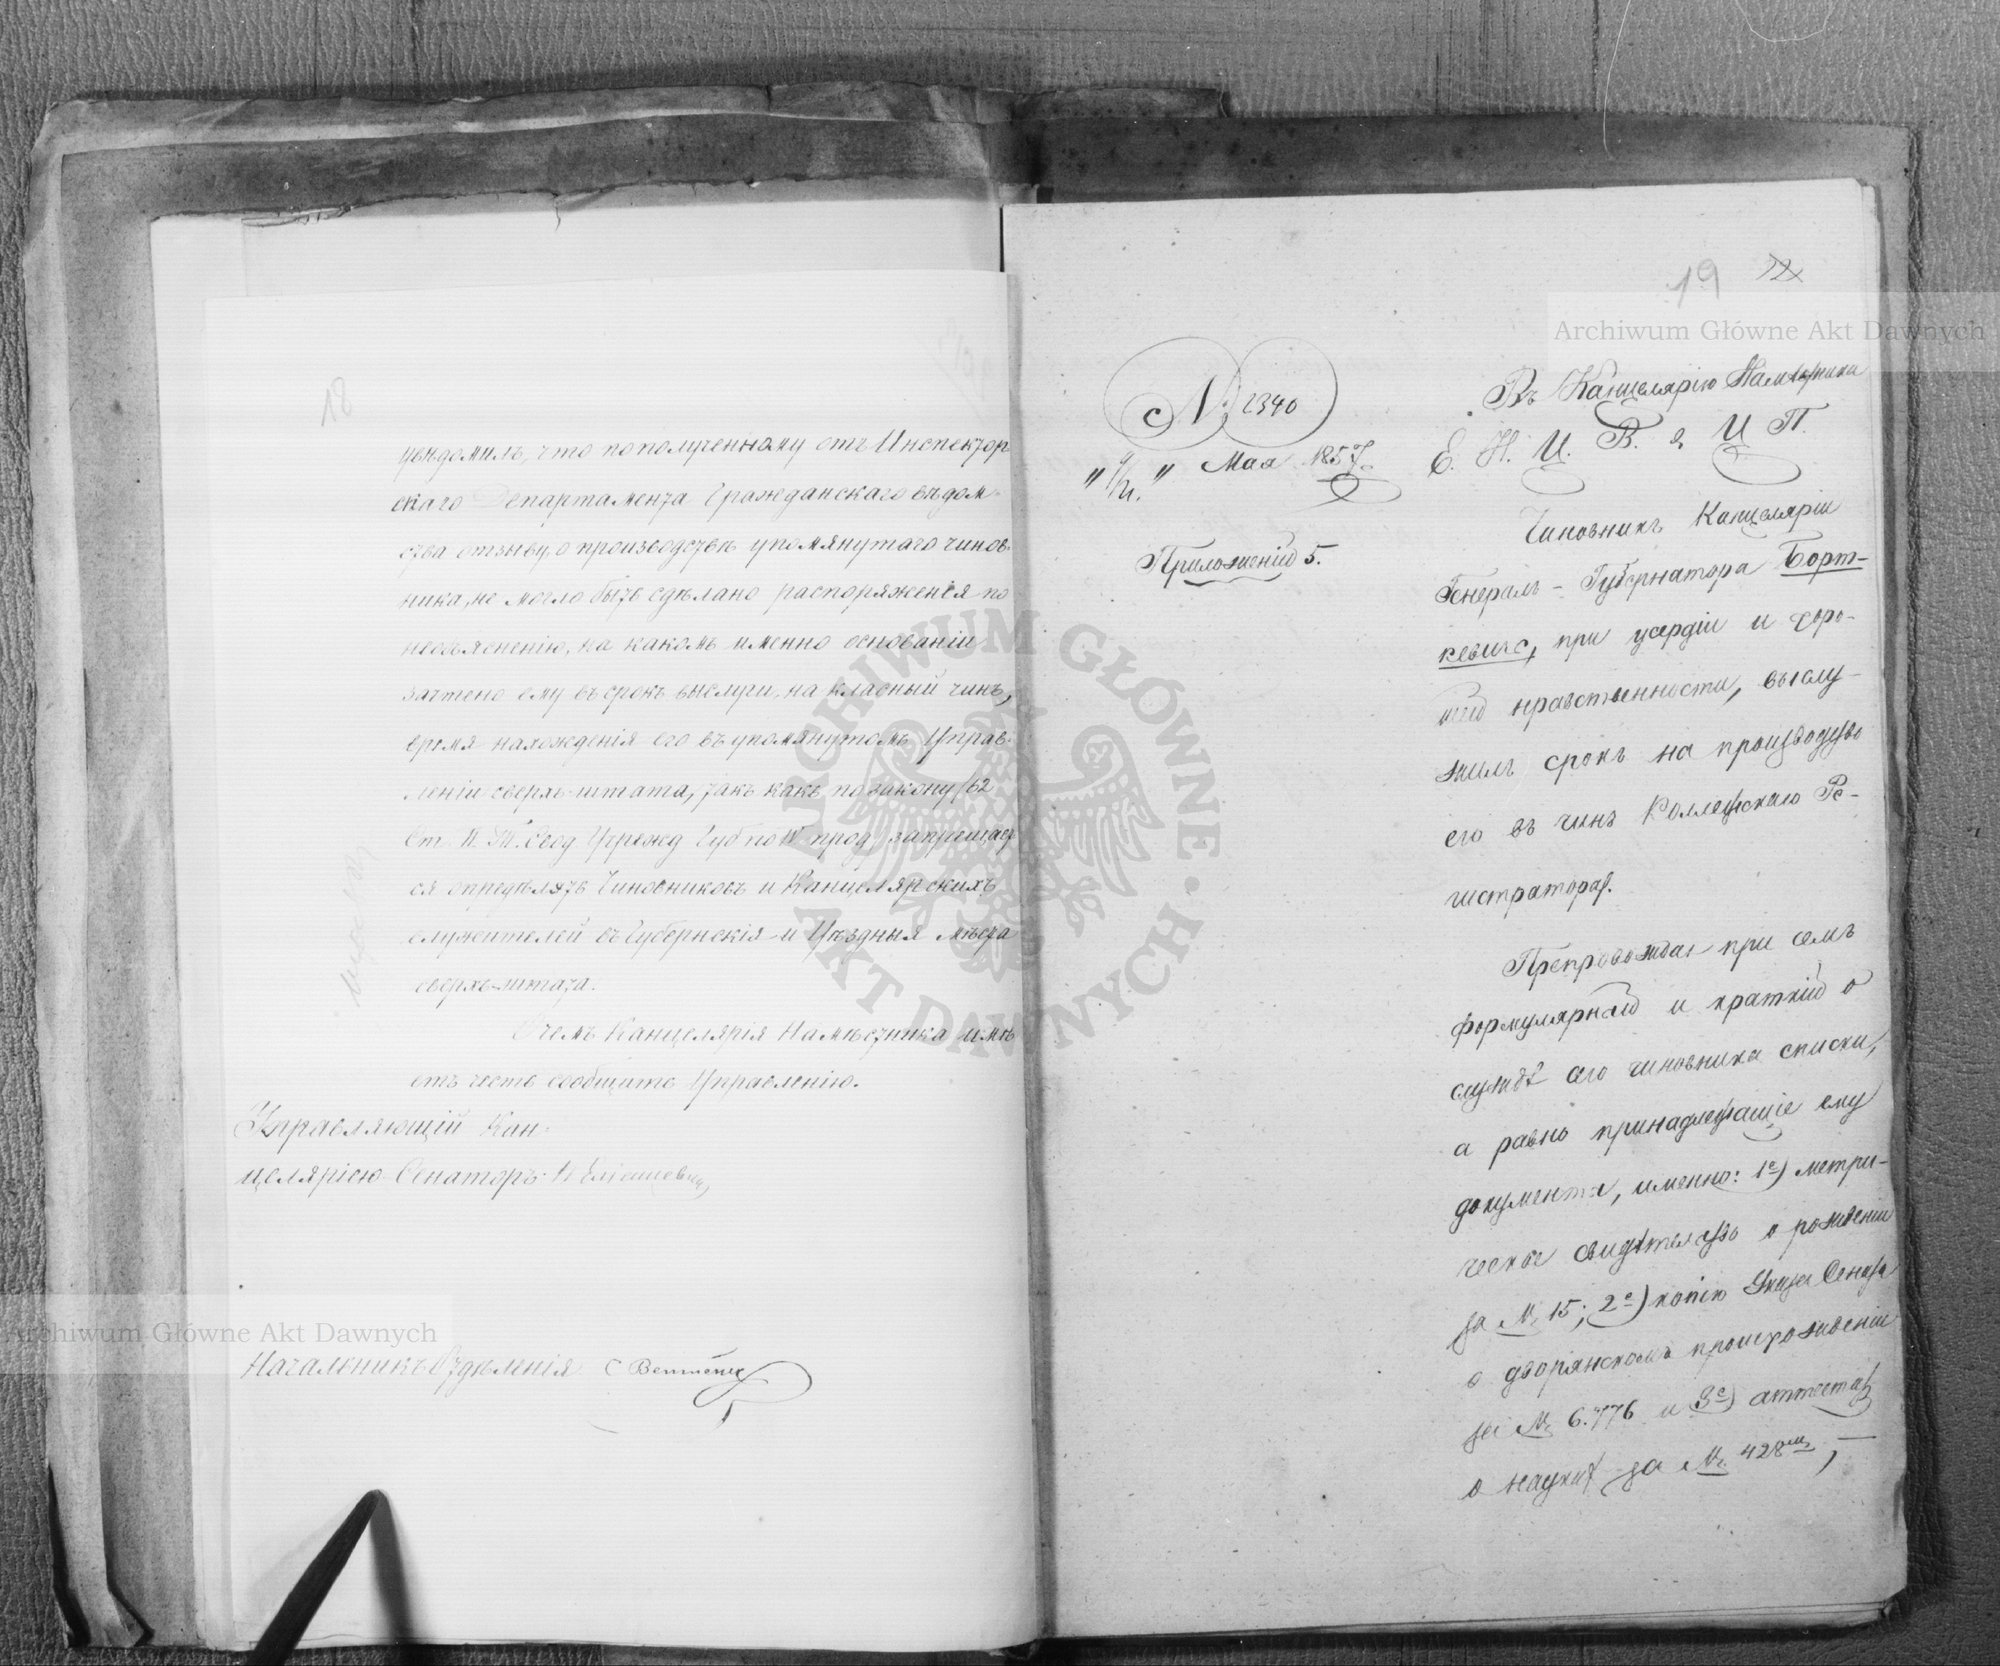 18
увѣдомилъ, что по полученному отъ Инспектор-
скаго Департамента Гражданскаго вѣдом-
ства отзыву, о производствѣ упомянутаго чинов-
ника, не могло быть сдѣлано распоряженія по
необъясненію, на какомъ именно основаніи
зачтено ему въ срокъ выслуги, на класный чинъ,
время нахожденія его въ упомянутомъ Управ-
леніи сверхъ штата, такъ какъ по закону /62
Ст. II. Т. Свод Учрежд Губ по IV прод/ запрещает
ся опредѣлять Чиновниковъ и Канцелярскихъ
служителей въ Губернскія и Уѣздныя мѣста
сверхъ-штата.
О чемъ Канцелярія Намѣстника имѣ
етъ честь сообщить Управленію.
Управляющій Кан-
целяріею Сенаторъ
Начальникъ Отдѣленія
19 12
№ 2340
" 9/21. " Мая 1857.
Приложеній 5.
Въ Канцелярію Намѣстника
Е. И. В. в Ц П.
Чиновникъ Канцеляріи
Генералъ-Губернатора Борт-
кевичъ, при усердіи и хоро-
шей нравственности, выслу-
жилъ срокъ на производство
его въ чинъ Коллежскаго Ре-
гистратора.
Препровождая при семъ
формулярный и краткій о
службѣ сего чиновника списки,
а равно принадлежащіе ему
документы, именно: 1е) метри-
ческое свидѣтельство о рожденіи
за № 15; 2е) копію Указа Сената
о дворянскомъ происхожденіи
за № 6.776 и 3е) аттестатъ
о наукахъ за № 428мъ, —
Archiwum Główne Akt Dawnych
Archiwum Główne Akt Dawnych
ARCHIWUM GŁÓWNE AKT DAWNYCH